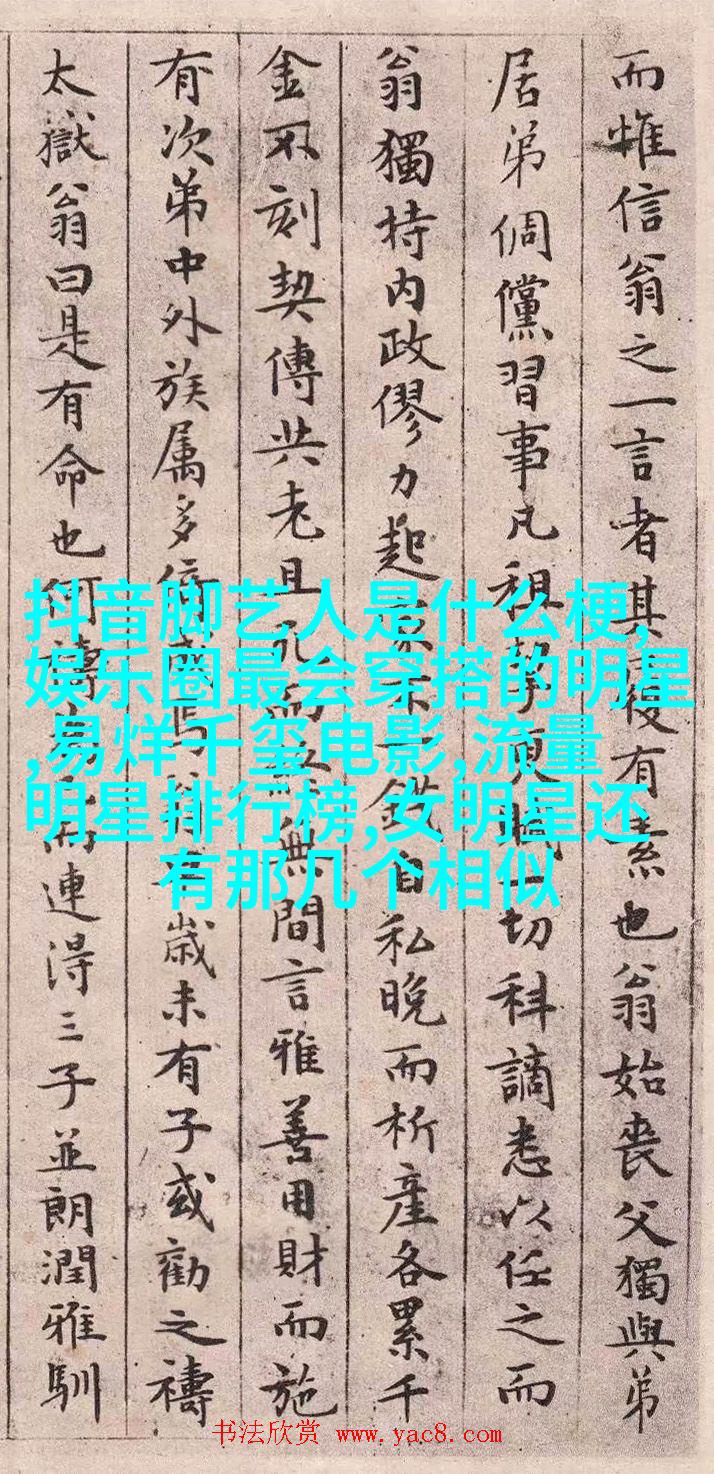 而惟信翁之一言者其
有素也翁始丧父獨與弟
居弟倜儻習事凡租
一切科謫悉以任之而
翁獨持内政僇力起
自私晚而析產各累千
金不刻契傳共老且
無間言雅善用財而施
有次弟中外族属多
歲未有子或勸之禱
太嶽翁曰是有命也何
連得三子並朗潤雅馴
抖音脚艺人是什么梗,
娱乐圈最会穿搭的明星
,易烊千玺电影,流量
明星排行榜,女明星还
有那几个相似
书法欣赏 www.yac8.com